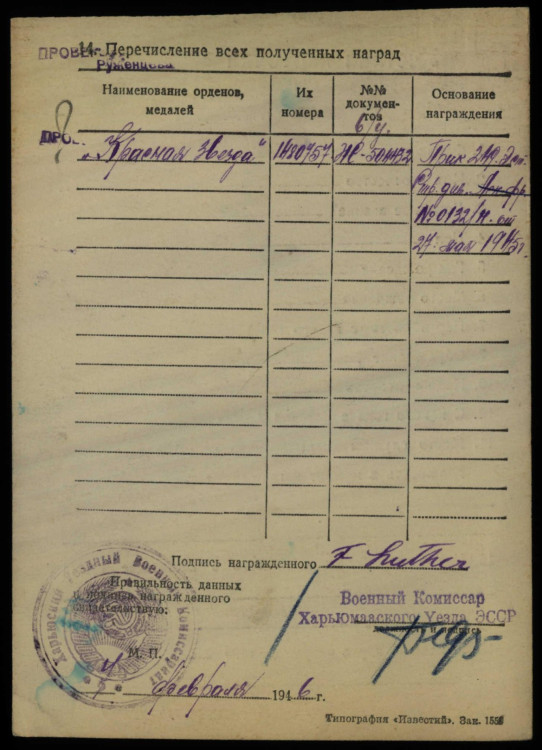 ПРОВЕ
14. Перечисление всех полученных наград
Руженцова
Наименование орденов, медалей
Их номера
№№ документов
Основание награждения
б/у.
ПРОВ
„Красная Звезда"
1480757
Прик 249. Эст.
Стр. див.
№0132/н. от
27. мая 1945г.
Подпись награжденного
F. Luther
Правильность данных
и подписи награжденного
свидетельствую:
Военный Комиссар
Харьюмааского Уезда ЭССР
М. П.
Харьюский Уездный Военный Комиссариат
4 февраля 1946 г.
Типография «Известий». Зак. 155